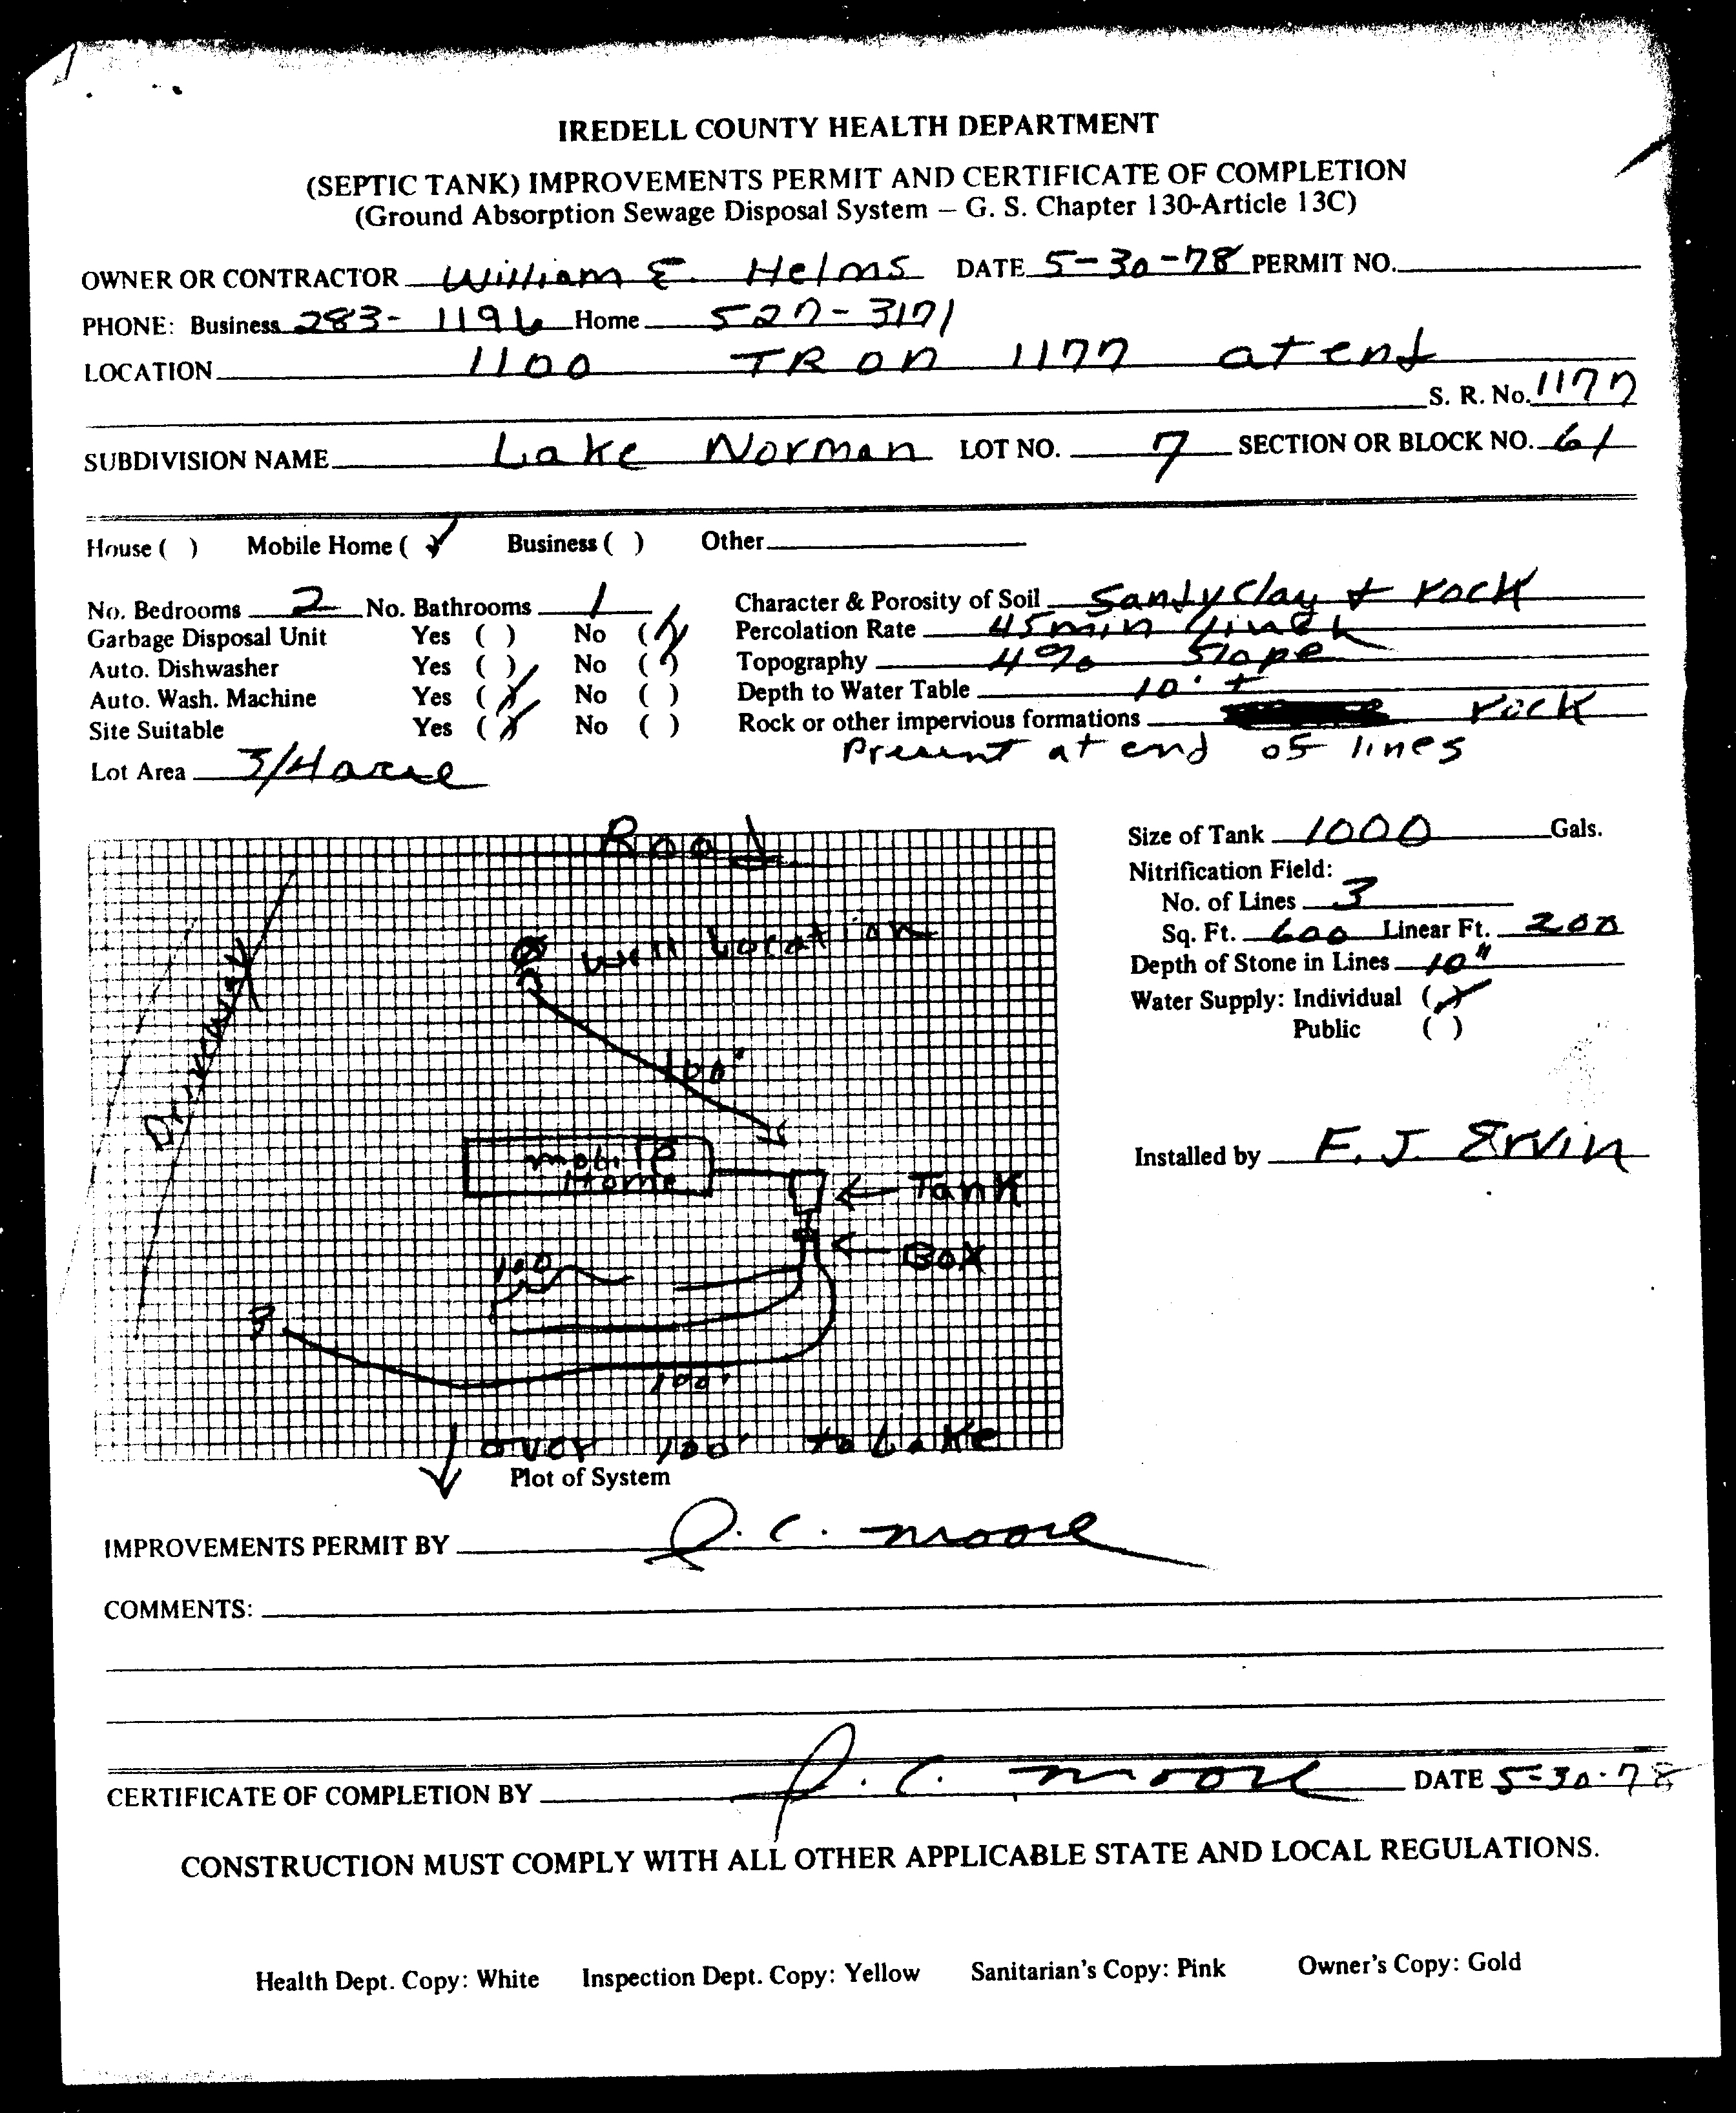 IREDELL COUNTY HEALTH DEPARTMENT
(SEPTIC TANK) IMPROVEMENTS PERMIT AND CERTIFICATE OF COMPLETION
(Ground Absorption Sewage Disposal System — G. S. Chapter 130-Article 13C)
OWNER OR CONTRACTOR William E. Helms DATE 5-30-78 PERMIT NO.
PHONE: Business 283-1196 Home 527-3171
LOCATION 1100 TR on 1177 at end
S. R. No. 1177
SUBDIVISION NAME Lake Norman LOT NO. 7 SECTION OR BLOCK NO. 61
House ( ) Mobile Home (✓) Business ( ) Other
No. Bedrooms 2 No. Bathrooms 1 Character & Porosity of Soil Sandy Clay + rock
Garbage Disposal Unit Yes ( ) No (✓) Percolation Rate 45 min / inch
Auto. Dishwasher Yes ( ) No (✓) Topography 4% Slope
Auto. Wash. Machine Yes (✓) No ( ) Depth to Water Table 10' +
Site Suitable Yes (✓) No ( ) Rock or other impervious formations rock
Present at end of lines
Lot Area 3/4 acre
Road
Well Location
Driveway
100'
mobile
Home
Tank
Box
100
3
100'
over 100' to Lake
Plot of System
Size of Tank 1000 Gals.
Nitrification Field:
No. of Lines 3
Sq. Ft. 600 Linear Ft. 200
Depth of Stone in Lines 10"
Water Supply: Individual (✓)
Public ( )
Installed by F. J. Ervin
IMPROVEMENTS PERMIT BY J. C. Moore
COMMENTS:
CERTIFICATE OF COMPLETION BY J. C. Moore DATE 5-30-78
CONSTRUCTION MUST COMPLY WITH ALL OTHER APPLICABLE STATE AND LOCAL REGULATIONS.
Health Dept. Copy: White Inspection Dept. Copy: Yellow Sanitarian's Copy: Pink Owner's Copy: Gold